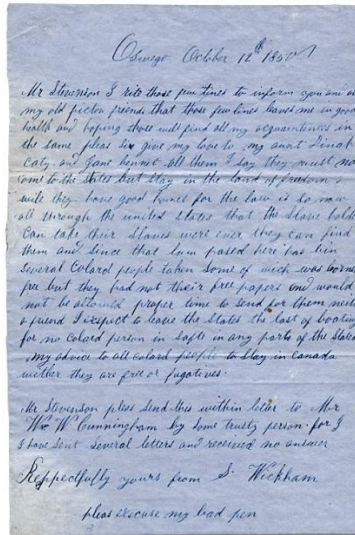 Oswego October 12th 1850
Mr Stevenson I rite those few lines to inform you and
my old picton friends that those few lines leaves me in good
health and hoping those will find all my acquaintences in
the same pleas sir give my love to my aunt Dinah
Caty and Jane bennet all them I say they must no
come to the states but Stay in the land of freedom
wile they have good times for the law is so now
all through the united states that the Slave hold
Can take their Slaves were ever they can find
them and since that law pased here has bin
several Colard people taken Some of wich was borne
free but they had not their free papers and would
not be allowed proper time to send for them neith
a friend I expect to leave the States the last of boating
for no colard person is safe in any parts of the States
my advice to all colard people to Stay in Canada
wether they are free or fugatives.
Mr Stevenson pleas send this within letter to Mr
Wm W Cunningham by some trusty person for I
I have sent several letters and received no answer
Respectfully yours from S. Wickham
pleas excuse my bad pen